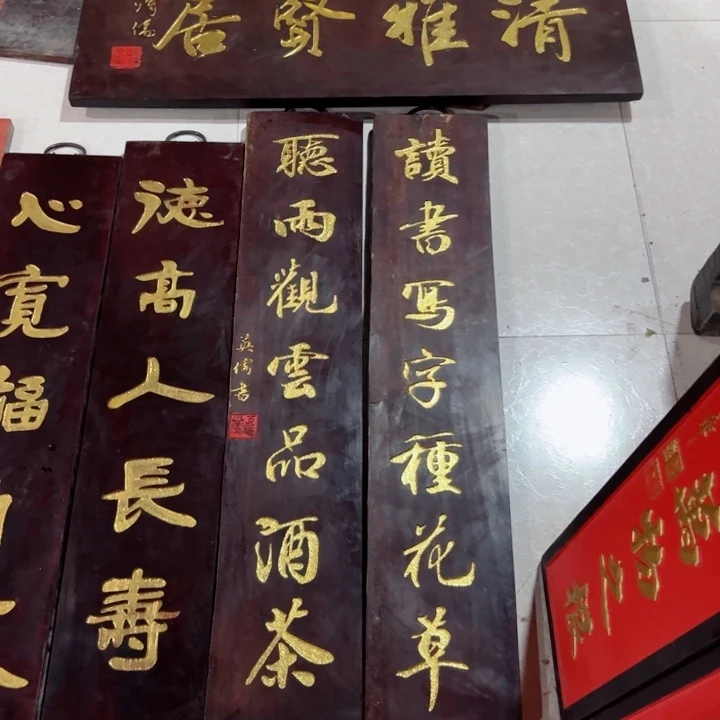 清雅賢居
讀書寫字種花草
聽雨觀雲品酒茶
英儒書
德高人長壽
心寬福